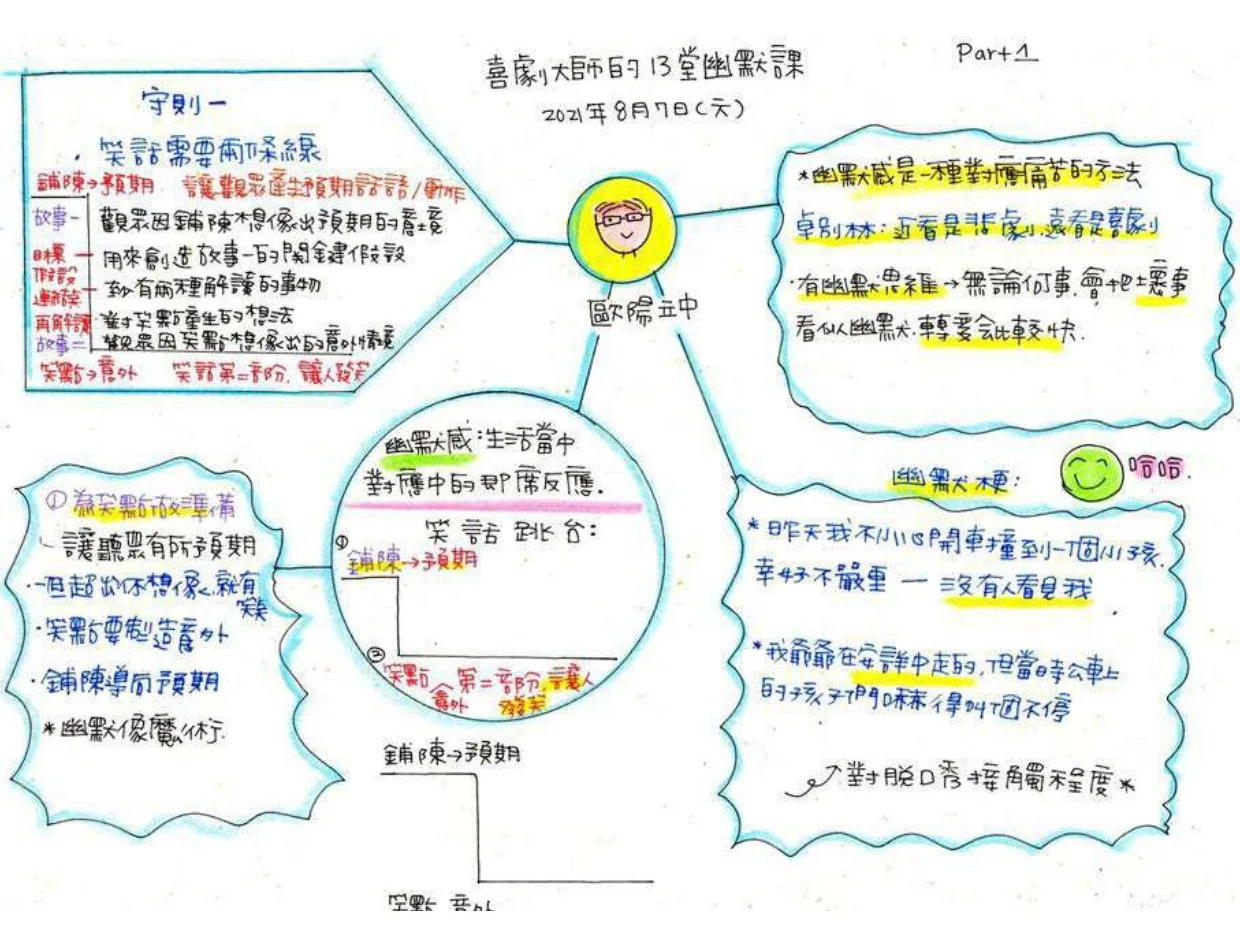 喜劇大師的13堂幽默課
Part 1
2021年8月7日(六)
守則一
笑話需要兩條線
鋪陳→預期 讓觀眾產生預期話語/動作
故事一 觀眾因鋪陳想像出預期的意境
目標 用來創造故事一的關鍵假設
假設
連結笑 至少有兩種解讀的事物
再解讀 對笑點產生的想法
故事二 觀眾因笑點想像出的意外情境
笑點→意外 笑話第二部份,讓人發笑
歐陽立中
*幽默感是一種對應痛苦的方法
卓別林:近看是悲劇,遠看是喜劇
·有幽默思維→無論何事,會把壞事
看似幽默,轉變會比較快.
幽默感:生活當中
對應中的即席反應.
笑話跳台:
① 鋪陳→預期
② 笑點 第二部份,讓人
意外 發笑
① 為笑點做準備
讓聽眾有所預期
·一但超出你想像,就有
笑
·笑點要制造意外
·鋪陳導向預期
*幽默像魔術.
鋪陳→預期
笑點 意外
幽默梗: 哈哈.
*昨天我不小心開車撞到一個小孩.
幸好不嚴重 — 沒有人看見我
*我爺爺在安詳中走的,但當時公車上
的孩子們口綝得叫個不停
對脫口秀接觸程度*